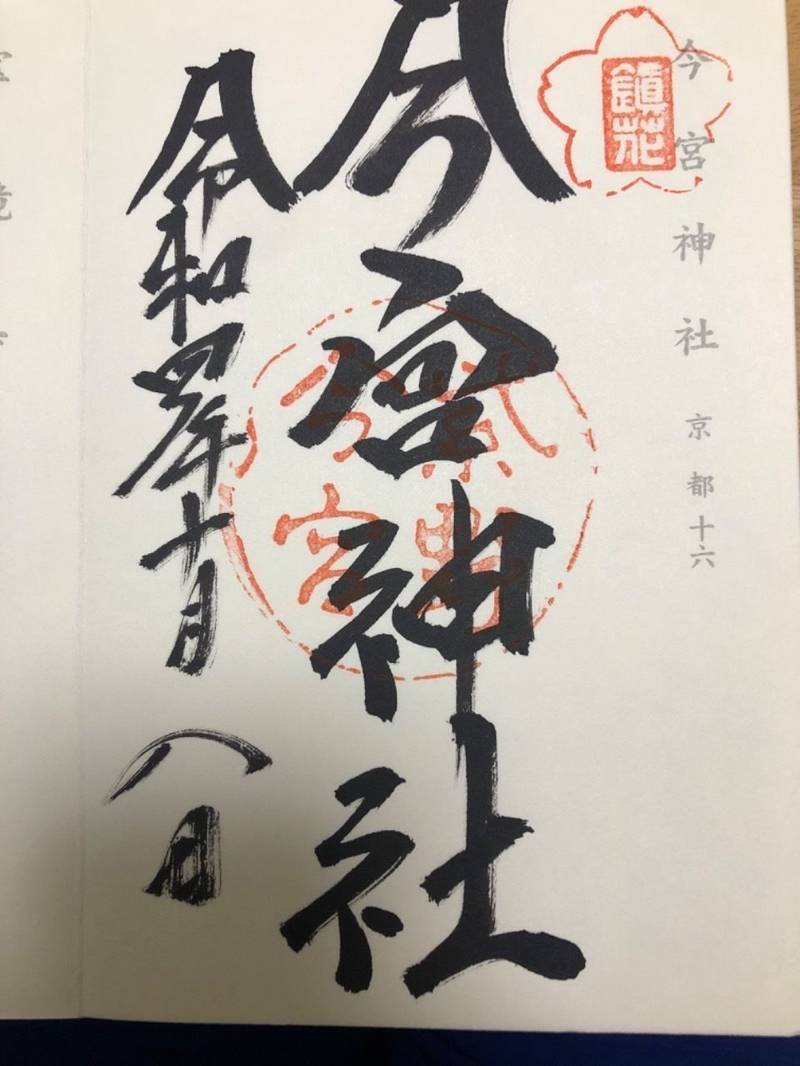 今宮神社 京都十六
鎮花
今宮神社
紫野
今宮
令和四年十月八日